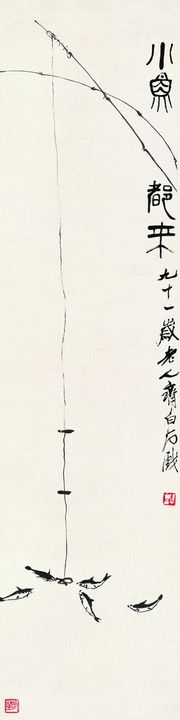 小魚都来
九十一歲老人齊白石戲